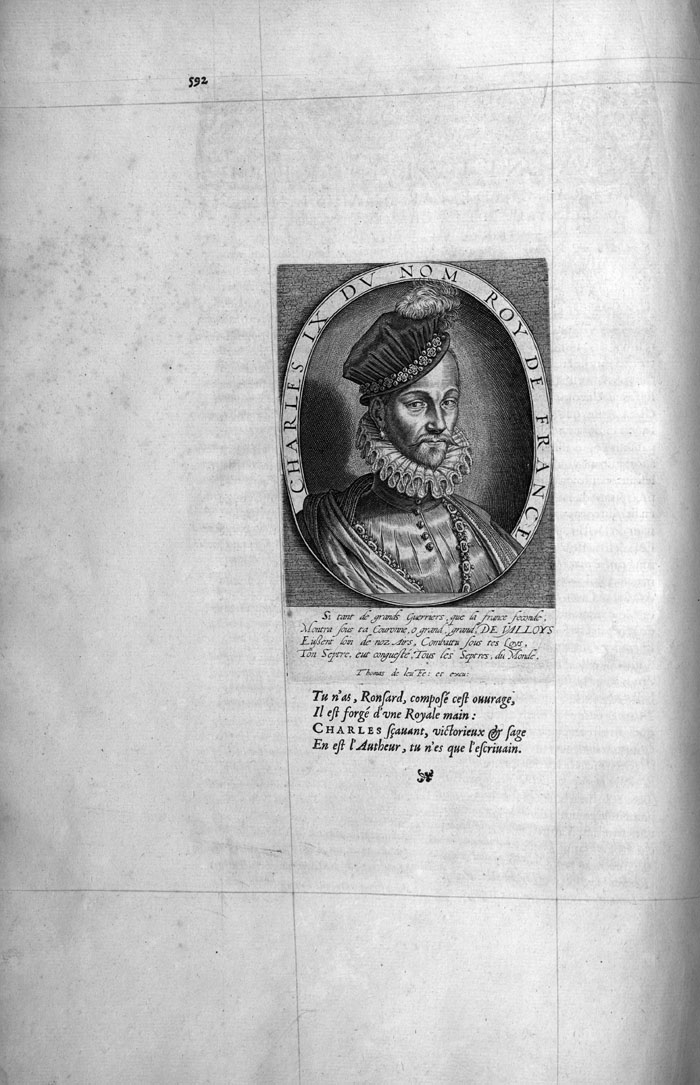 592
CHARLES IX DV NOM ROY DE FRANCE
Si tant de grands Guerriers, que la france feconde.
Montra sous ta Couronne, o grand, grand, DE VALLOYS
Eussent loin de noz Airs, Combattu sous tes Loys,
Ton Septre, eut conquesté, Tous les Septres, du Monde.
Thomas de leu Fe: et excu:
Tu n'as, Ronſard, compoſé ceſt ouurage,
Il eſt forgé d'vne Royale main :
CHARLES ſçauant, victorieux & ſage
En eſt l'Autheur, tu n'es que l'eſcriuain.